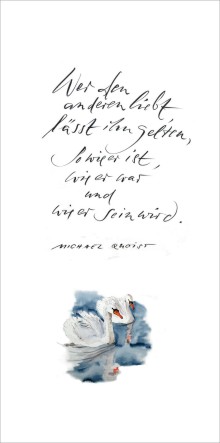 Wer den
anderen liebt
lässt ihn gelten,
so wie er ist,
wie er war
und
wie er sein wird.
MICHAEL QUOIST